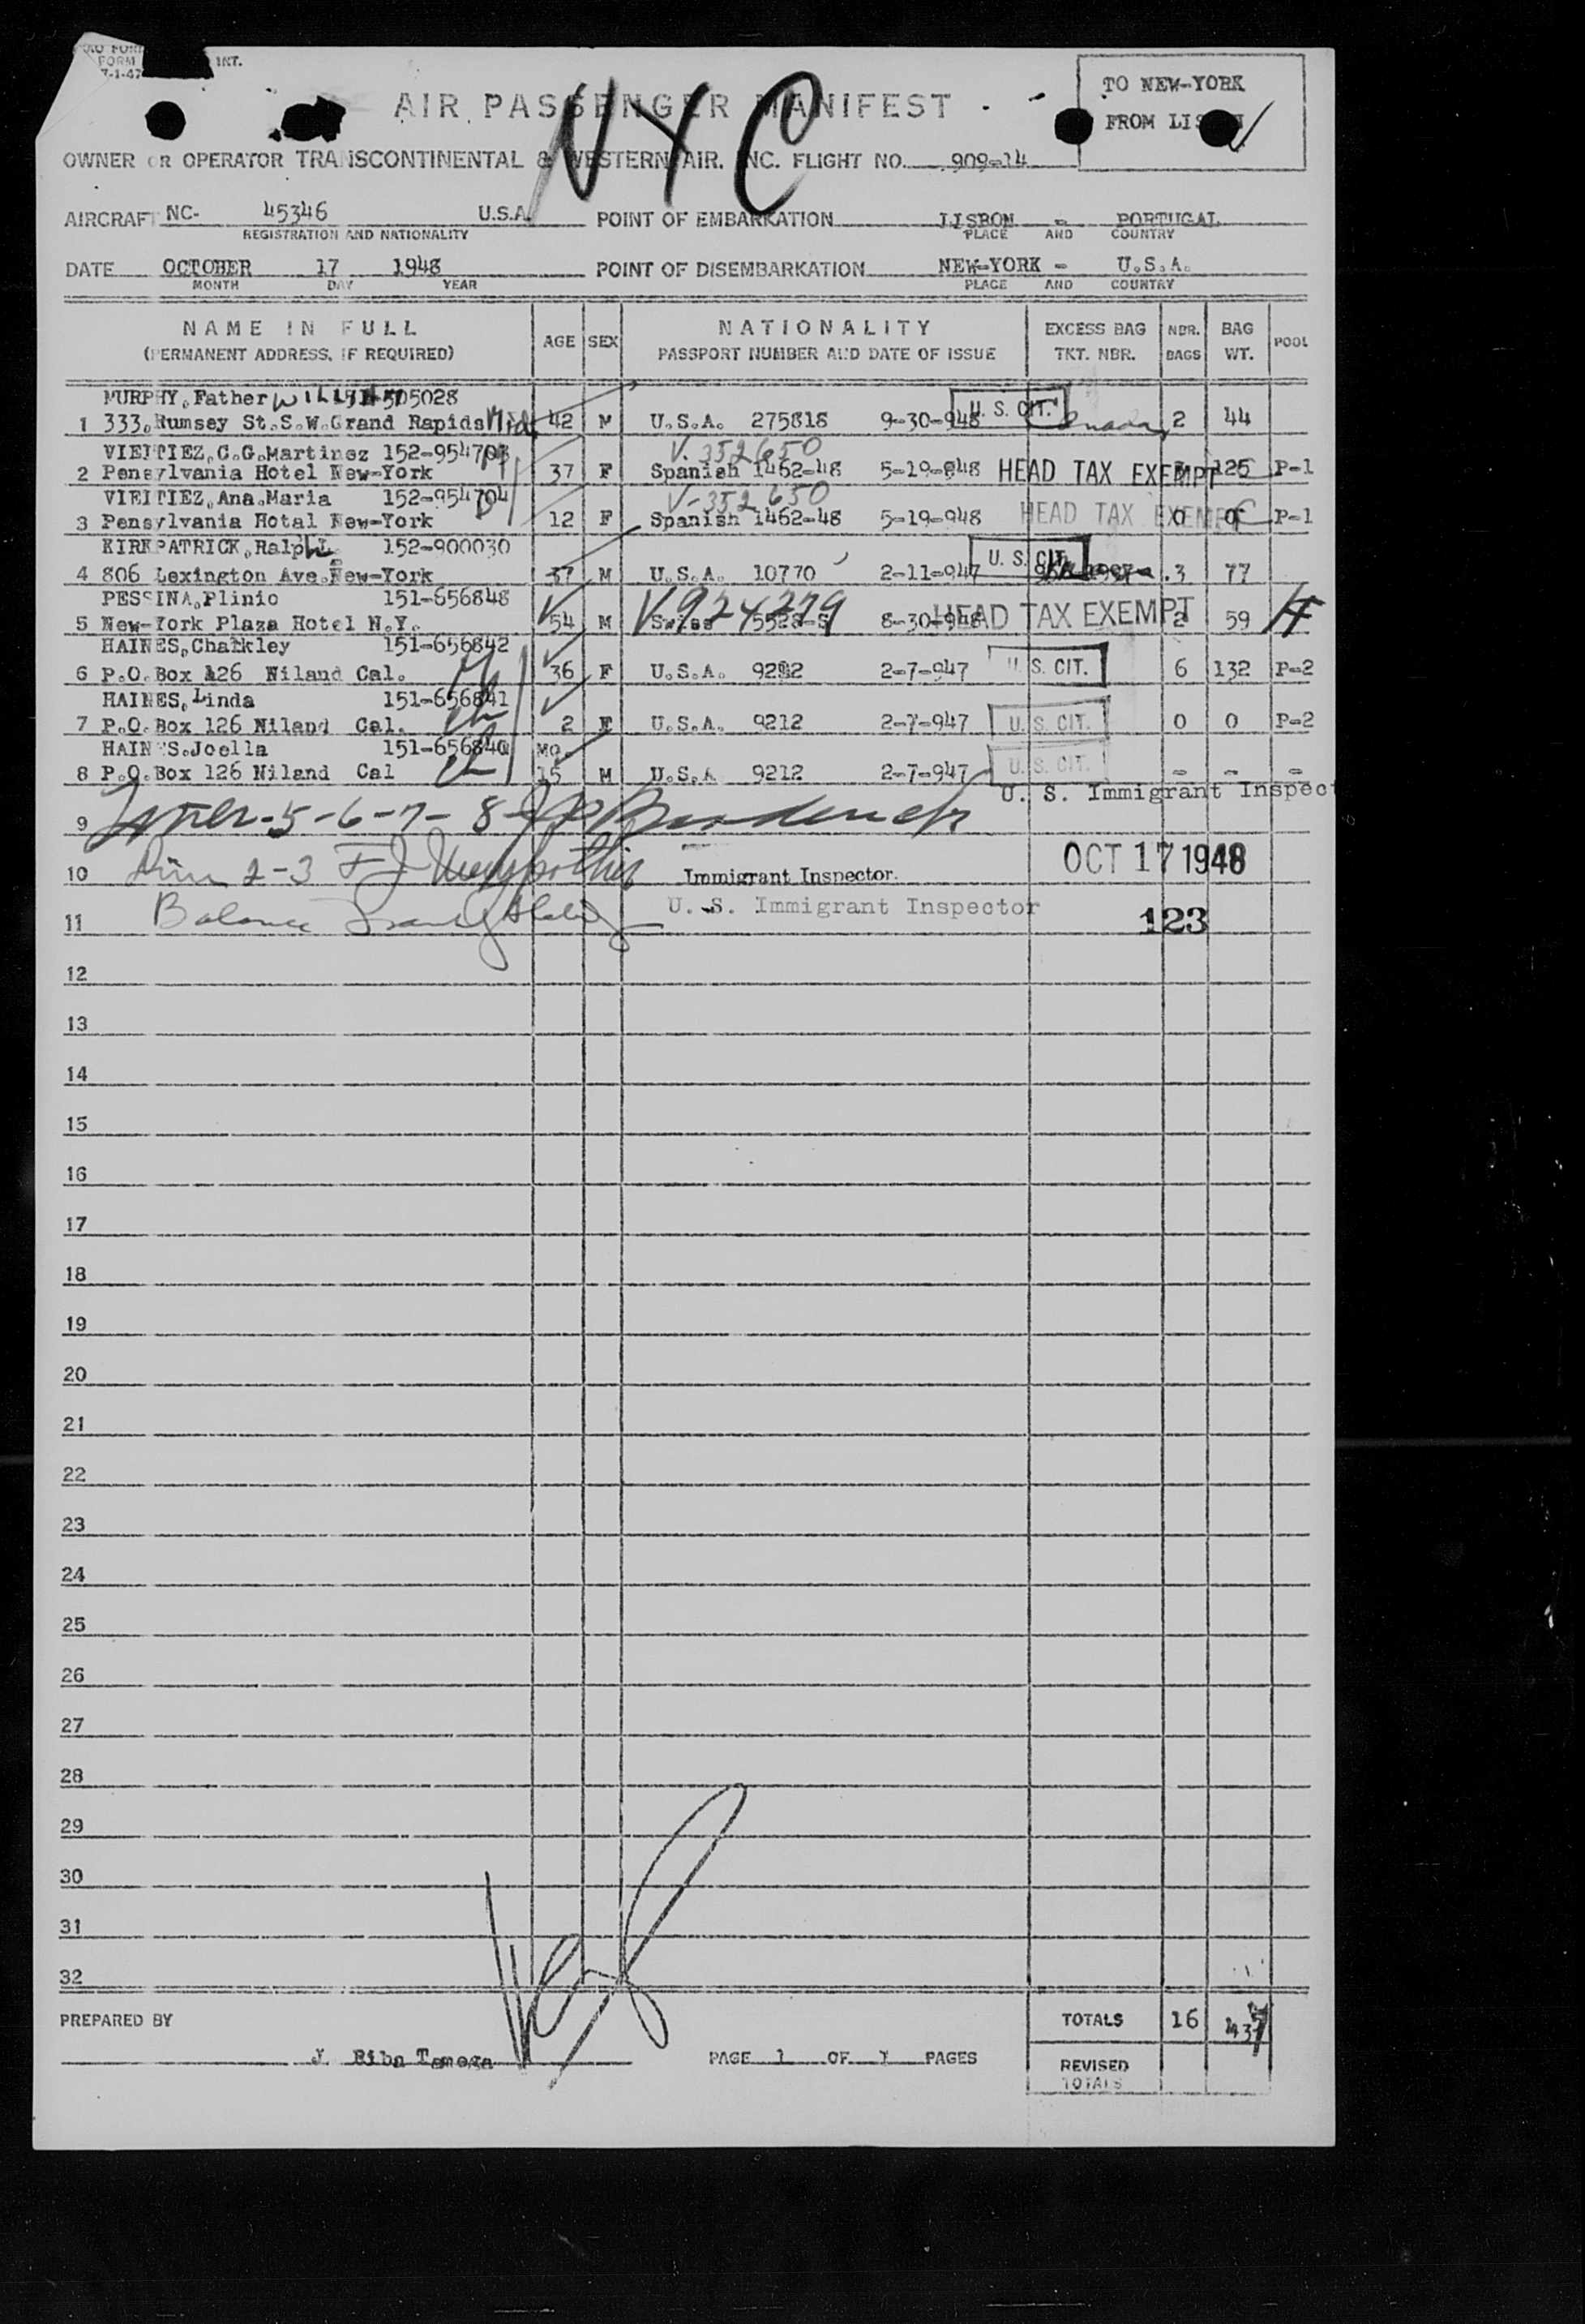 FORM INT.
7-1-47
TO NEW-YORK
NYC
AIR PASSENGER MANIFEST
FROM
OWNER OR OPERATOR TRANSCONTINENTAL & WESTERN AIR. INC. FLIGHT NO. 909-14
AIRCRAFT NC- 45346 U.S.A. POINT OF EMBARKATION LISBON - PORTUGAL
REGISTRATION AND NATIONALITY PLACE AND COUNTRY
DATE OCTOBER 17 1948 POINT OF DISEMBARKATION NEW-YORK - U.S.A.
MONTH DAY YEAR PLACE AND COUNTRY
NAME IN FULL AGE SEX NATIONALITY EXCESS BAG NBR. BAG POOL
(PERMANENT ADDRESS, IF REQUIRED) PASSPORT NUMBER AND DATE OF ISSUE TKT. NBR. BAGS WT.
MURPHY, Father 505028
1 333, Rumsey St. S.W. Grand Rapids 42 M U.S.A. 275818 9-30-948 U. S. CIT. Canada 2 44
VIEITIEZ, C.G. Martinez 152-954703 V. 352650
2 Pensylvania Hotel New-York 37 F Spanish 1462-48 5-19-948 HEAD TAX EXEMPT 125 P-1
VIEITIEZ, Ana Maria 152-954704 V-352650
3 Pensylvania Hotal New-York 12 F Spanish 1462-48 5-19-948 HEAD TAX EXEMPT 0 0 P-1
KIRKPATRICK, Ralph L. 152-900030
4 806 Lexington Ave. New-York 37 M U.S.A. 10770 2-11-947 U. S. CIT. 3 77
PESSINA, Plinio 151-656848 V924279
5 New-York Plaza Hotel N.Y. 54 M Swiss 5528-S 8-30-948 HEAD TAX EXEMPT 2 59 H
HAINES, Chalkley 151-656842
6 P.O. Box 126 Niland Cal. 36 F U.S.A. 9212 2-7-947 U. S. CIT. 6 132 P-2
HAINES, Linda 151-656841
7 P.O. Box 126 Niland Cal. 2 F U.S.A. 9212 2-7-947 U. S. CIT. 0 0 P-2
HAINES, Joella 151-656840 MO.
8 P.O. Box 126 Niland Cal 15 M U.S.A 9212 2-7-947 U. S. CIT. - - -
U. S. Immigrant Inspect
9 5-6-7-8
10 2-3 Immigrant Inspector. OCT 17 1948
11 Balance U. S. Immigrant Inspector 123
12
13
14
15
16
17
18
19
20
21
22
23
24
25
26
27
28
29
30
31
32
PREPARED BY TOTALS 16 437
J Riba Tamega PAGE 1 OF 1 PAGES
REVISED
TOTALS